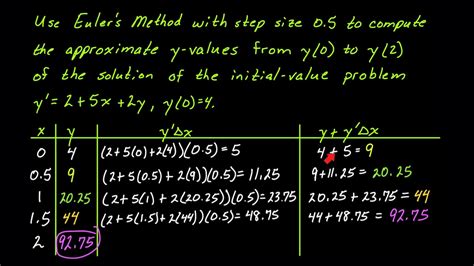 Use Euler's Method with step size 0.5 to compute
the approximate y-values from y(0) to y(2)
of the solution of the initial-value problem
y' = 2 + 5x + 2y, y(0)=4.
x y y'Δx y + y'Δx
0 4 (2+5(0)+2(4))(0.5) = 5 4 + 5 = 9
0.5 9 (2+5(0.5)+2(9))(0.5) = 11.25 9 + 11.25 = 20.25
1 20.25 (2+5(1)+2(20.25))(0.5) = 23.75 20.25 + 23.75 = 44
1.5 44 (2+5(1.5)+2(44))(0.5) = 48.75 44 + 48.75 = 92.75
2 92.75